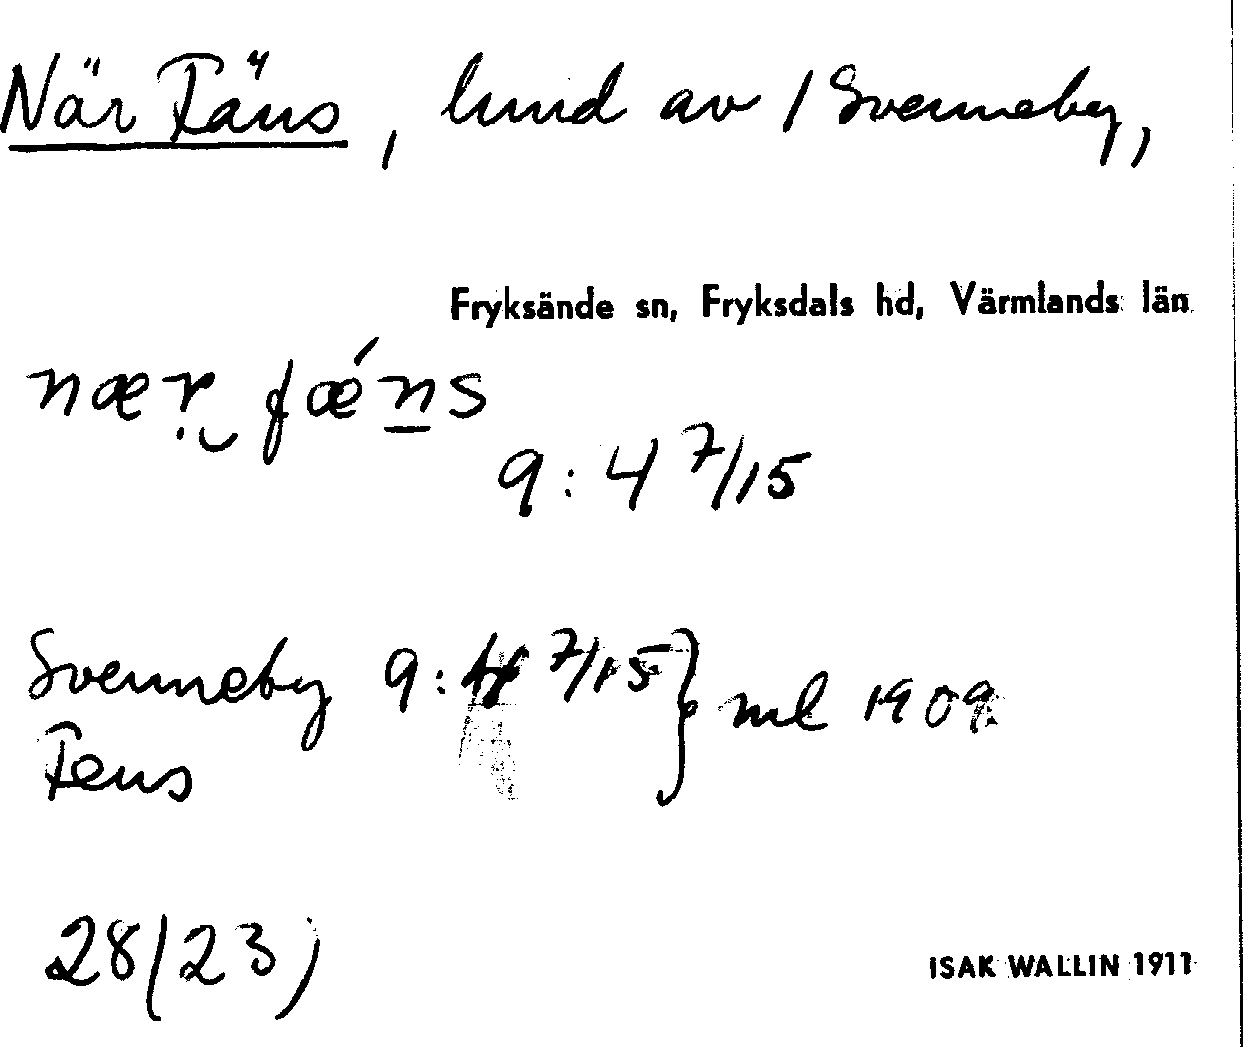 När Fäns, lund av / Svenneby,
Fryksände sn, Fryksdals hd, Värmlands län
nær fǽns
9:4 7/15
Svenneby 9:4 7/15 } ml 1909
Fens
28(23)
ISAK WALLIN 1911